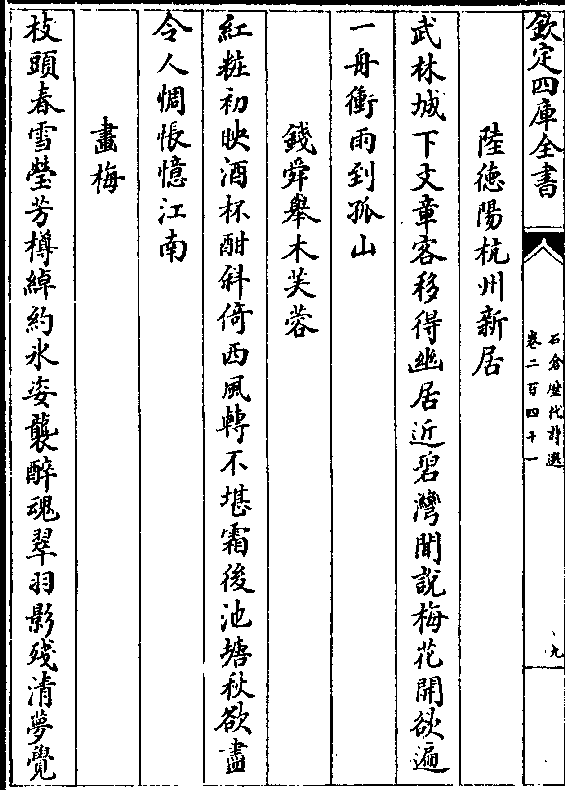 欽定四庫全書
石倉歷代詩選
卷二百四十一
九
陸徳陽杭州新居
武林城下文章客移得幽居近碧灣聞說梅花開欲遍
一舟衝雨到孤山
錢舜舉木芙蓉
紅粧初映酒杯酣斜倚西風轉不堪霜後池塘秋欲盡
令人惆悵憶江南
畫梅
枝頭春雪瑩芳樽綽約氷姿襲醉魂翠羽影殘清夢覺